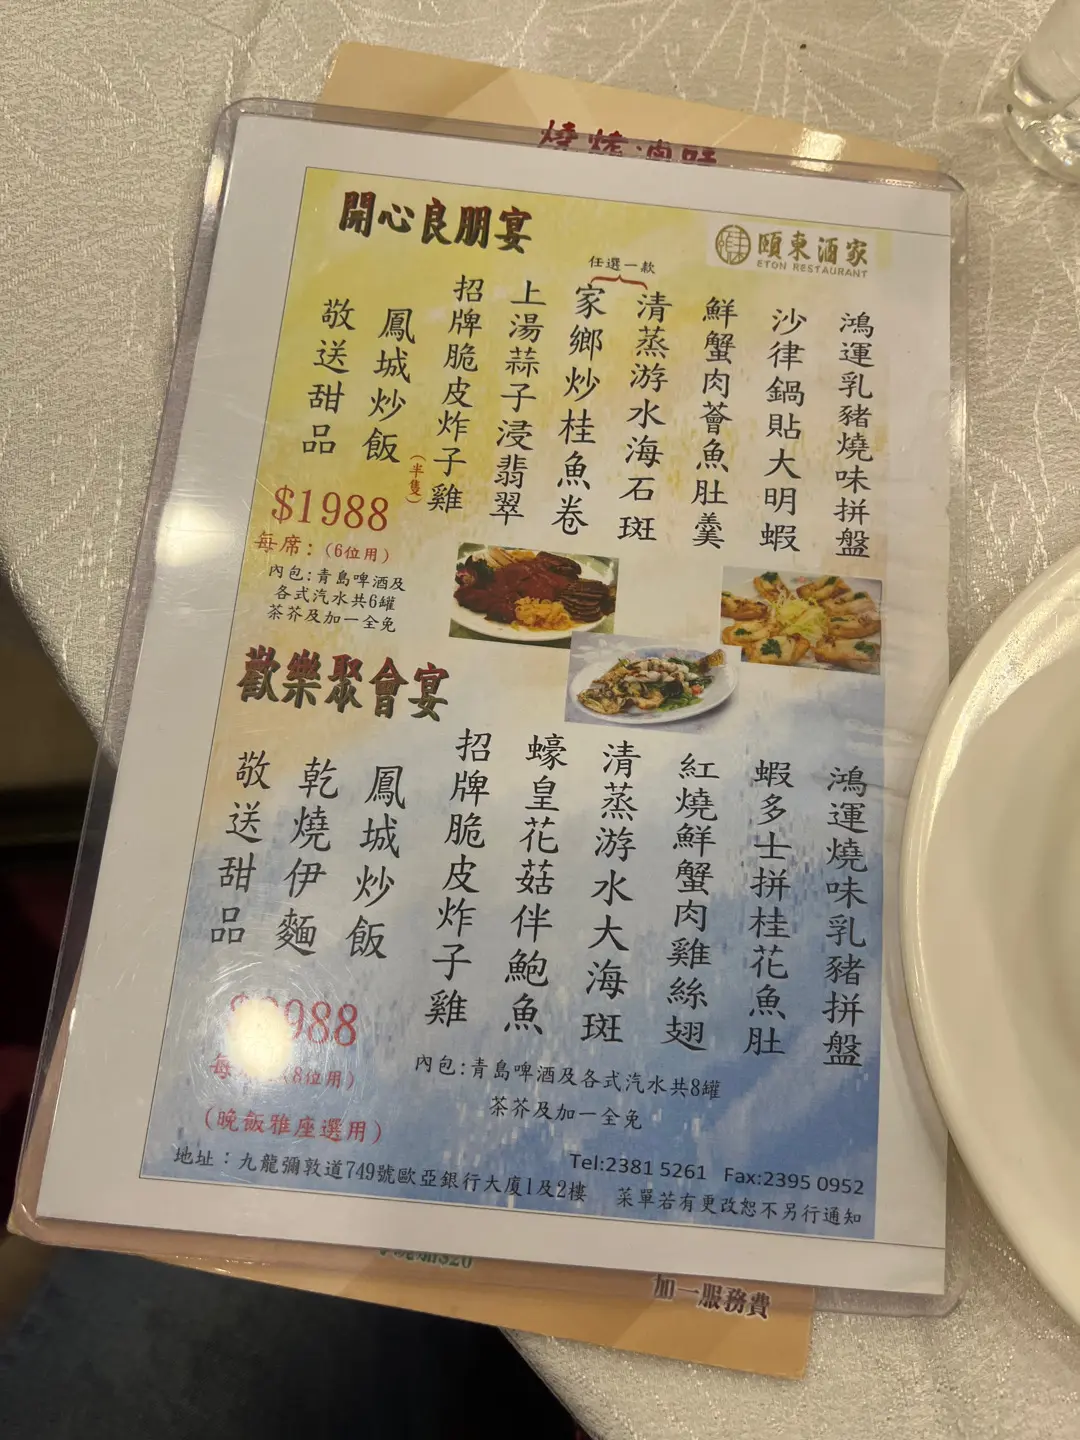 燒烤滷味
開心良朋宴
頤東酒家
ETON RESTAURANT
鴻運乳豬燒味拼盤
沙律鍋貼大明蝦
鮮蟹肉薈魚肚羹
任選一款
清蒸游水海石斑
家鄉炒桂魚卷
上湯蒜子浸翡翠
招牌脆皮炸子雞
(半隻)
鳳城炒飯
敬送甜品
$1988
每席:(6位用)
內包:青島啤酒及
各式汽水共6罐
茶芥及加一全免
歡樂聚會宴
鴻運燒味乳豬拼盤
蝦多士拼桂花魚肚
紅燒鮮蟹肉雞絲翅
清蒸游水大海斑
蠔皇花菇伴鮑魚
招牌脆皮炸子雞
鳳城炒飯
乾燒伊麵
敬送甜品
988
每 (8位用)
(晚飯雅座選用)
內包:青島啤酒及各式汽水共8罐
茶芥及加一全免
地址:九龍彌敦道749號歐亞銀行大廈1及2樓
Tel:2381 5261 Fax:2395 0952
菜單若有更改恕不另行通知
加一服務費